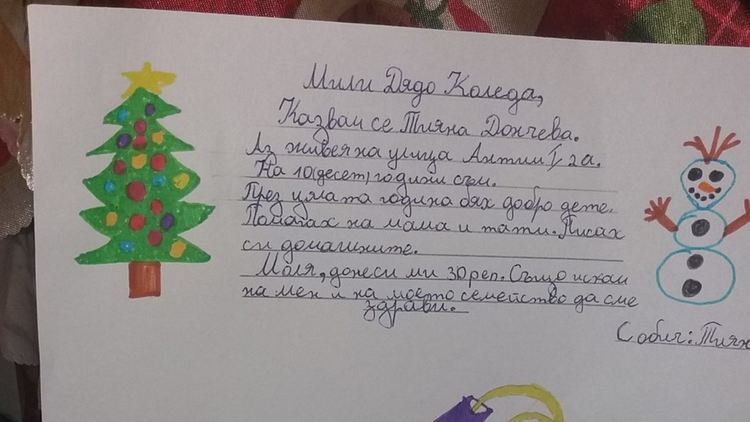 Мили Дядо Коледа,
Казвам се Тияна Дончева.
Аз живея на улица Антим I, 2а.
На 10(десет) години съм.
През цялата година бях добро дете.
Помагах на мама и тати. Писах
си домашните.
Моля, донеси ми Зорер. Също искам
на мен и на моето семейство да сме
здрави.
С обич: Тиян